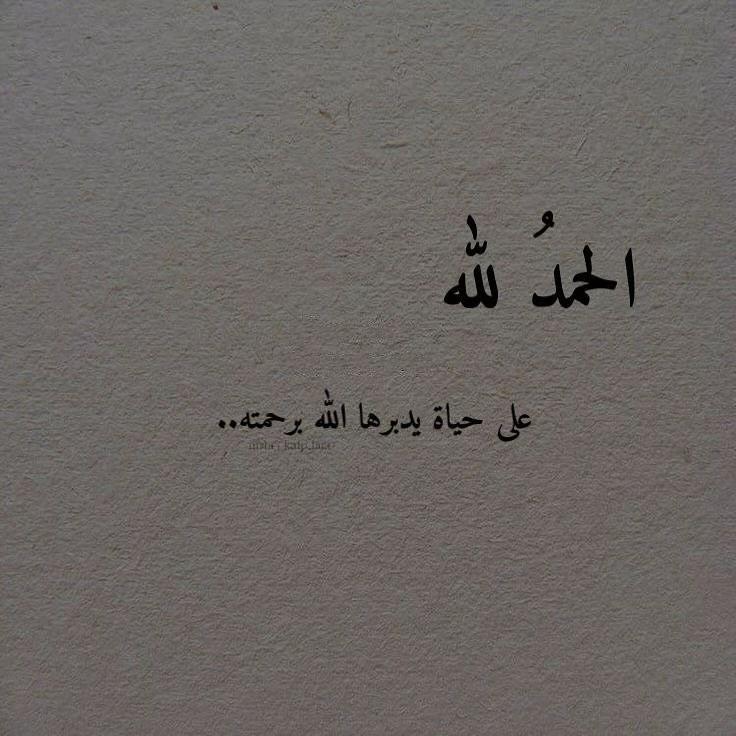 الحمدُ لله
على حياة يدبرها الله برحمته..